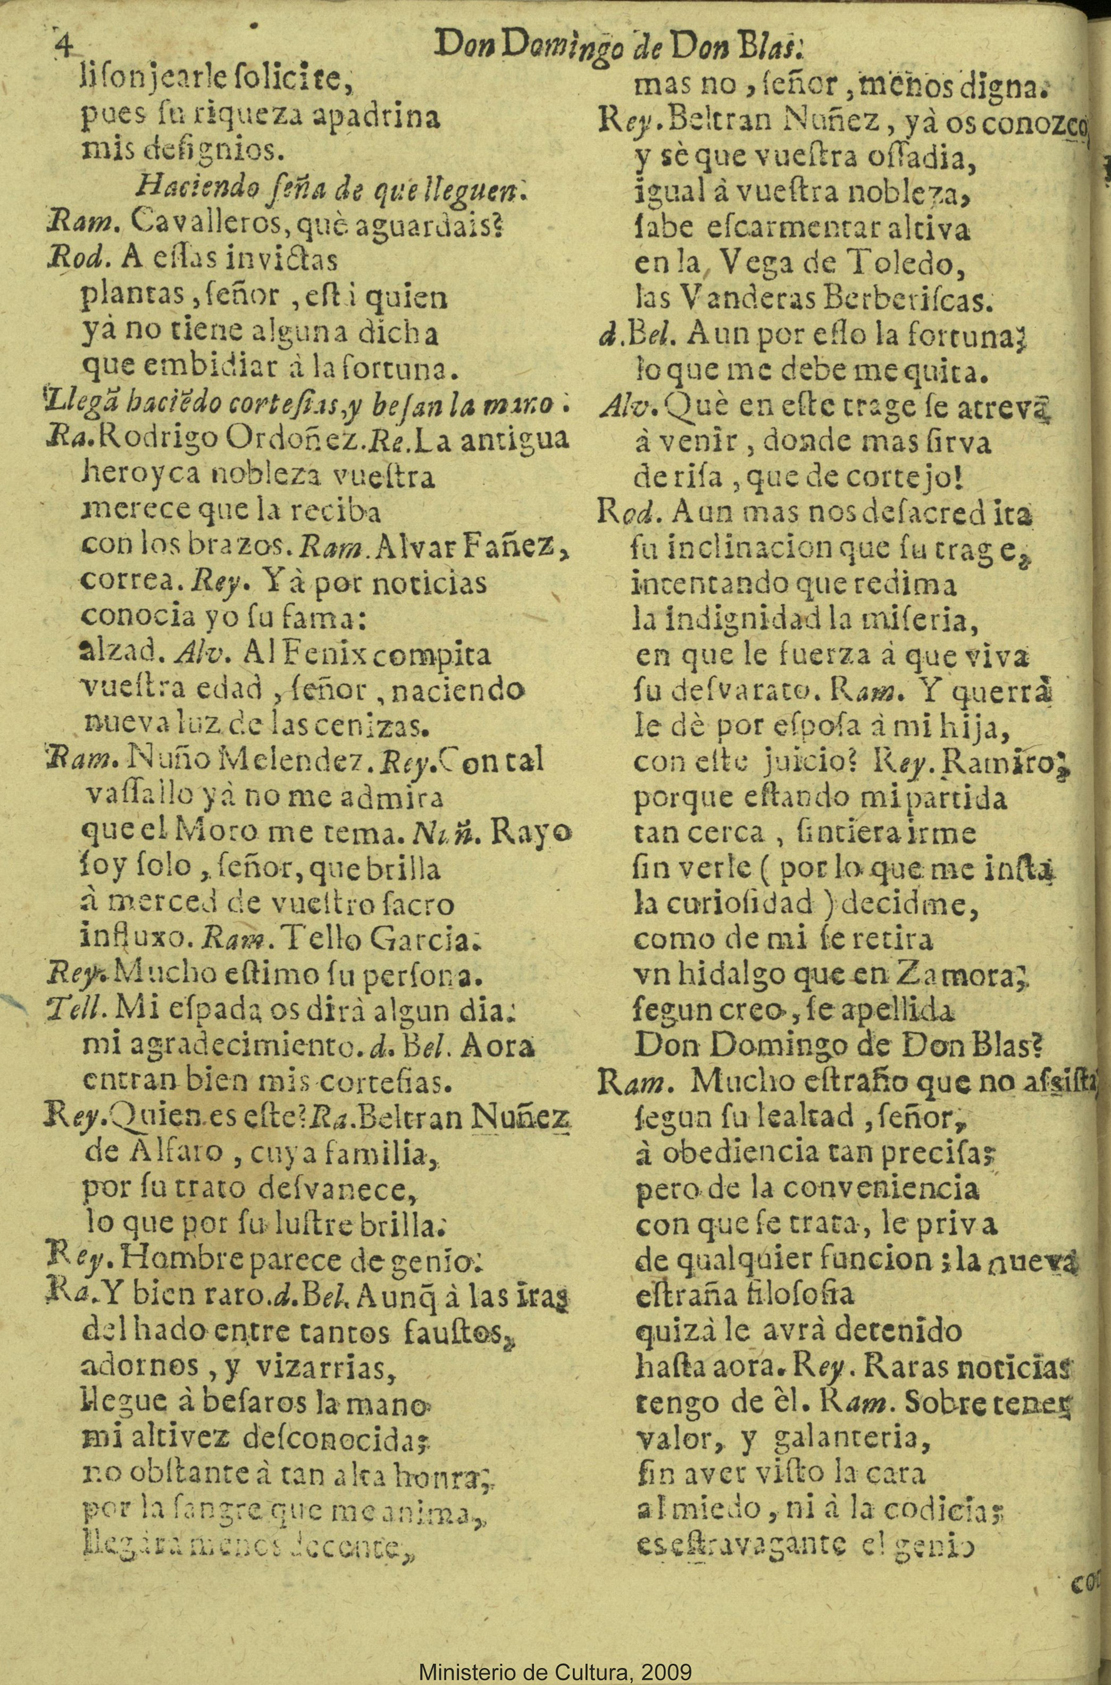 4
Don Domingo de Don Blas.
lisonjearle solicite,
pues su riqueza apadrina
mis designios.
Haciendo seña de que lleguen.
Ram. Cavalleros, què aguardais?
Rod. A essas invictas
plantas, señor, está quien
yà no tiene alguna dicha
que embidiar à la fortuna.
Llegã haciẽdo cortesias, y besan la mano.
Ra. Rodrigo Ordoñez. Re. La antigua
heroyca nobleza vuestra
merece que la reciba
con los brazos. Ram. Alvar Fañez,
correa. Rey. Yà por noticias
conocia yo su fama:
alzad. Alv. Al Fenix compita
vuestra edad, señor, naciendo
nueva luz de las cenizas.
Ram. Nuño Melendez. Rey. Con tal
vassallo yà no me admira
que el Moro me tema. Nuñ. Rayo
soy solo, señor, que brilla
à merced de vuestro sacro
influxo. Ram. Tello Garcia.
Rey. Mucho estimo su persona.
Tell. Mi espada os dirà algun dia
mi agradecimiento. d. Bel. Aora
entran bien mis cortesias.
Rey. Quien es este? Ra. Beltran Nuñez
de Alfaro, cuya familia,
por su trato desvanece,
lo que por su lustre brilla.
Rey. Hombre parece de genio.
Ra. Y bien raro. d. Bel. Aunq̃ à las iras
del hado entre tantos faustos,
adornos, y vizarrias,
llegue à besaros la mano
mi altivez desconocida;
no obstante à tan alta honra,
por la sangre que me anima,
llegàra menos decente,
mas no, señor, menos digna.
Rey. Beltran Nuñez, yà os conozco,
y sè que vuestra ossadia,
igual à vuestra nobleza,
sabe escarmentar altiva
en la Vega de Toledo,
las Vanderas Berberiscas.
d. Bel. Aun por esso la fortuna,
lo que me debe me quita.
Alv. Què en este trage se atreva
à venir, donde mas sirva
de risa, que de cortejo!
Rod. Aun mas nos desacredita
su inclinacion que su trage,
intentando que redima
la indignidad la miseria,
en que le fuerza à que viva
su desvarato. Ram. Y querrà
le dè por esposa à mi hija,
con este juicio? Rey. Ramiro,
porque estando mi partida
tan cerca, sintiera irme
sin verle (por lo que me insta
la curiosidad) decidme,
como de mi se retira
vn hidalgo que en Zamora,
segun creo, se apellida
Don Domingo de Don Blas?
Ram. Mucho estraño que no assista
segun su lealtad, señor,
à obediencia tan precisa;
pero de la conveniencia
con que se trata, le priva
de qualquier funcion; la nueva
estraña filosofia
quizà le avrà detenido
hasta aora. Rey. Raras noticias
tengo de èl. Ram. Sobre tener
valor, y galanteria,
sin aver visto la cara
al miedo, ni à la codicia;
es estravagante el genio
Ministerio de Cultura, 2009